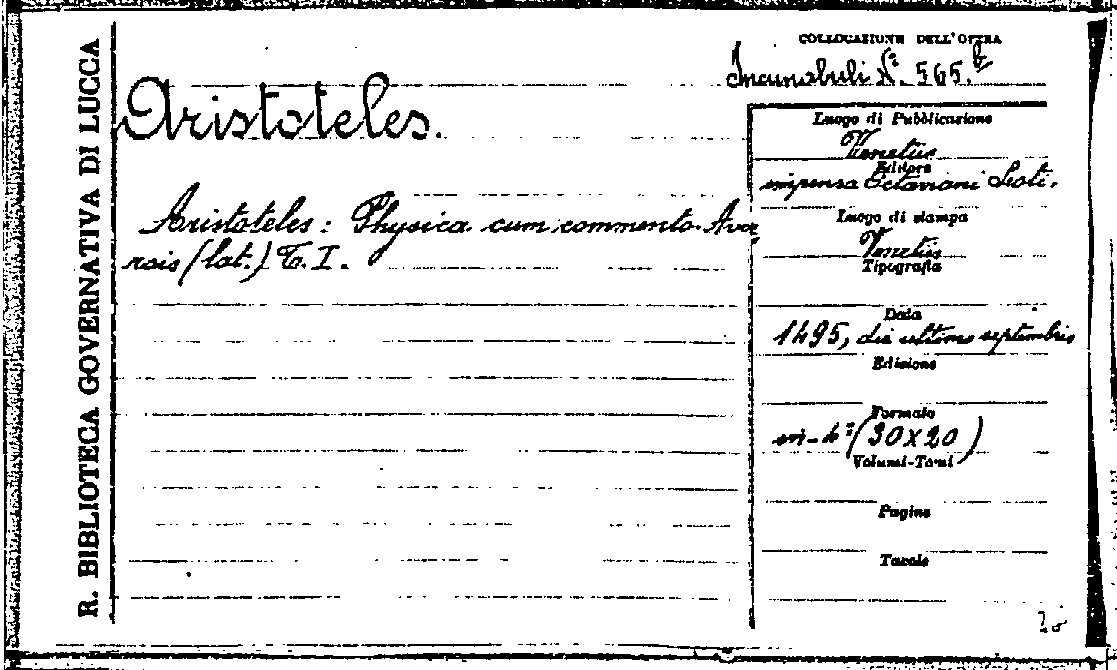 R. BIBLIOTECA GOVERNATIVA DI LUCCA
COLLOCAZIONE DELL'OPERA
Incunabuli N.º 565.b
Aristoteles.
Aristoteles: Physica cum commento Aver
rois (lat.) T. I.
Luogo di Pubblicazione
Venetiis
Editore
impensa Octaviani Scoti.
Luogo di stampa
Venetiis
Tipografia
Data
1495, die ultimo septembris
Edizione
Formato
in-4º (30x20)
Volumi-Tomi
Pagine
Tavole